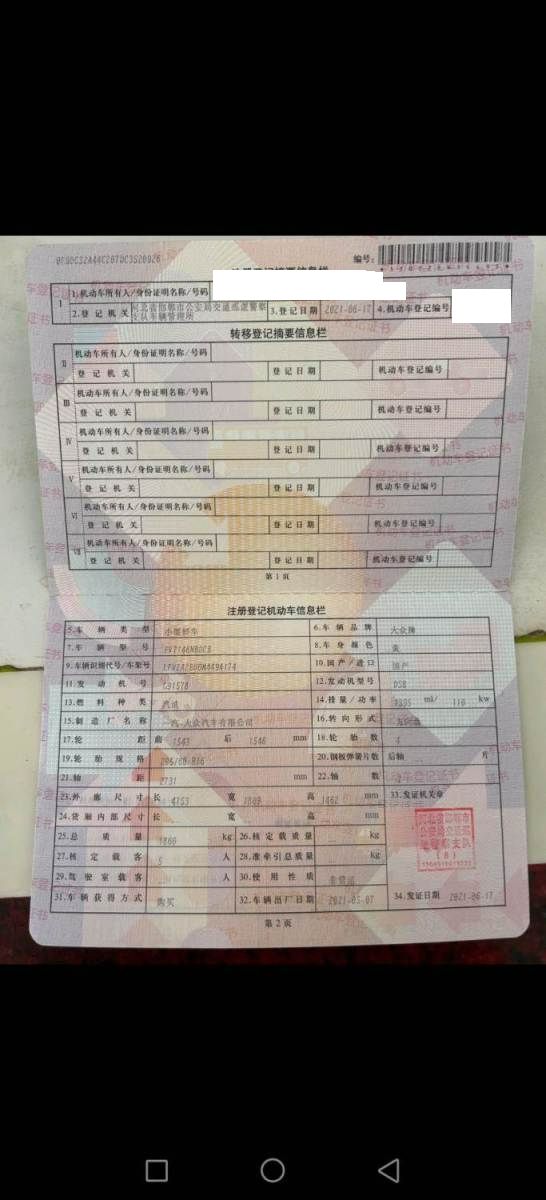 编号:
注册登记摘要信息栏
I 1.机动车所有人/身份证明名称/号码
2.登记机关 河北省邯郸市公安局交通巡逻警察支队车辆管理所 3.登记日期 2021-06-17 4.机动车登记编号
转移登记摘要信息栏
II 机动车所有人/身份证明名称/号码
登记机关 登记日期 机动车登记编号
III 机动车所有人/身份证明名称/号码
登记机关 登记日期 机动车登记编号
IV 机动车所有人/身份证明名称/号码
登记机关 登记日期 机动车登记编号
V 机动车所有人/身份证明名称/号码
登记机关 登记日期 机动车登记编号
VI 机动车所有人/身份证明名称/号码
登记机关 登记日期 机动车登记编号
VII 机动车所有人/身份证明名称/号码
登记机关 登记日期 机动车登记编号
第1页
注册登记机动车信息栏
5.车辆类型 小型轿车 6.车辆品牌 大众牌
7.车辆型号 8.车身颜色
9.车辆识别代号/车架号 10.国产/进口 国产
11.发动机号 12.发动机型号
13.燃料种类 汽油 14.排量/功率 1395 ml/ 110 kw
15.制造厂名称 一汽-大众汽车有限公司 16.转向形式
17.轮距 前 1543 后 1546 mm 18.轮胎数
19.轮胎规格 205/60 R16 20.钢板弹簧片数 后轴 片
21.轴距 2731 mm 22.轴数 2
23.外廓尺寸 长 4753 宽 高 1462 mm 33.发证机关章
24.货厢内部尺寸 长 宽 高 mm
25.总质量 1860 kg 26.核定载质量 kg
27.核定载客 5 人 28.准牵引总质量 kg
29.驾驶室载客 人 30.使用性质 非营运
31.车辆获得方式 购买 32.车辆出厂日期 2021-05-07 34.发证日期 2021-06-17
第2页